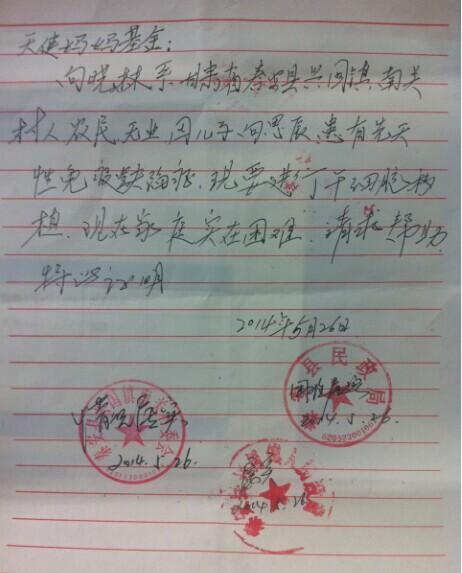 天使妈妈基金：
向晓林系甘肃省秦安县兴国镇南关
村人农民，无业，因儿子向思辰，患有先天
性免疫缺陷症，现要进行干细胞移
植，现在家庭实在困难，请求帮助
特此证明
2014年5月26日
情况属实
2014.5.26.
县民政局
2014.5.26.
2014.5.26